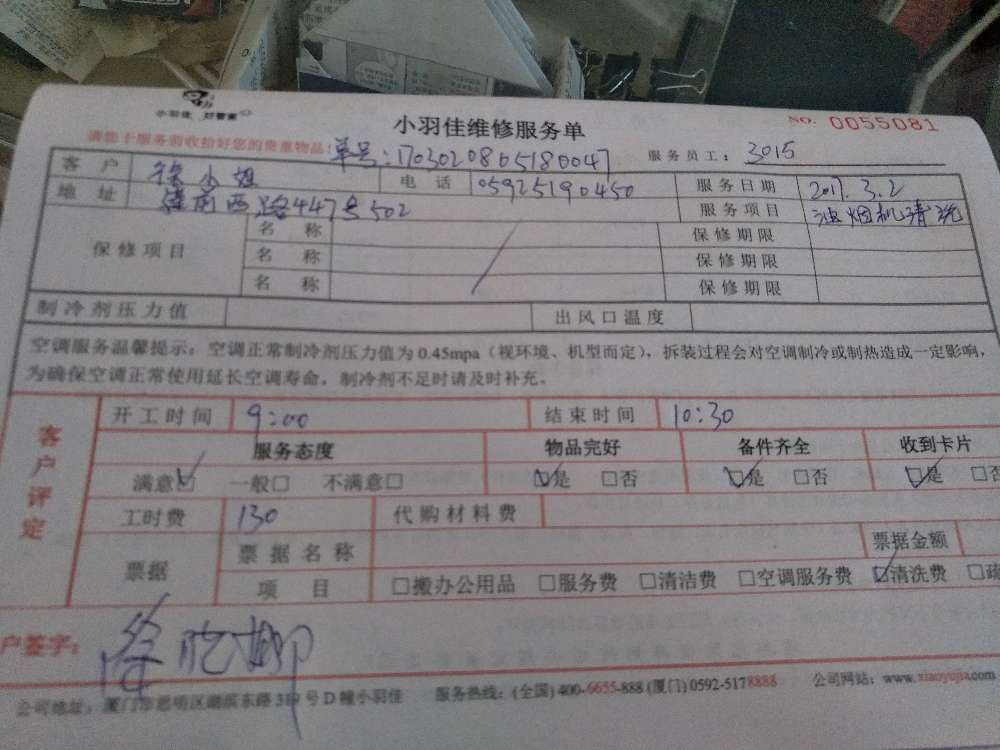 小羽佳 好管家
小羽佳维修服务单
NO. 0055081
请您于服务前收拾好您的贵重物品!
单号:1703020805180047
服务员工: 3015
客户 徐小姐 电话 05925190450 服务日期 2017.3.2
地址 西路447号502 服务项目 油烟机清洗
保修项目 名称 保修期限
名称 保修期限
名称 保修期限
制冷剂压力值 出风口温度
空调服务温馨提示:空调正常制冷剂压力值为0.45mpa(视环境、机型而定),拆装过程会对空调制冷或制热造成一定影响,
为确保空调正常使用延长空调寿命,制冷剂不足时请及时补充。
客户评定
开工时间 9:00 结束时间 10:30
服务态度 物品完好 备件齐全 收到卡片
满意☑ 一般□ 不满意□ ☑是 □否 ☑是 □否 ☑是 □否
工时费 130 代购材料费
票据 票据名称 票据金额
项目 □搬办公用品 □服务费 □清洁费 □空调服务费 ☑清洗费 □疏
户签字: 徐
公司地址:厦门市思明区湖滨东路319号D幢小羽佳 服务热线:(全国)400-6655-888(厦门)0592-5178888 公司网站:www.xiaoyujia.com